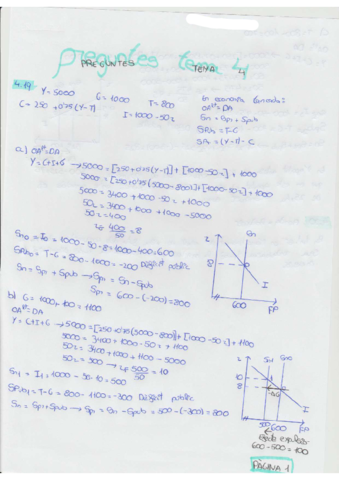 preguntes tema 4
PREGUNTES TEMA 4
4.19 Y=5000 G=1000 T=800
C=250+0'75(Y-T) I=1000-50r
En economia tancada:
OA=DA
Sn=Sp+Spub
SPub=T-G
SPr=(Y-T)-C
a) OA=DA
Y=C+I+G → 5000=[250+0'75(Y-T)]+[1000-50r]+1000
5000=[250+0'75(5000-800)]+[1000-50r]+1000
5000=3400+1000-50r+1000
50r=3400+1000+1000-5000
50r=400
r= 400/50 = 8
Sno=Io=1000-50·8=1000-400=600
SPubo=T-G=800-1000=-200 Dèficit públic
Sn=Sp+Spub → Sp=Sn-Spub
Sp=600-(-200)=800
r
Sn
8
I
600
FP
b) G=1000+100=1100
OA=DA
Y=C+I+G → 5000=[250+0'75(5000-800)]+[1000-50r]+1100
5000=3400+1000-50r+1100
50r=3400+1000+1100-5000
50r=500 → r=500/50=10
Sn1=I1=1000-50·10=500
SPub1=T-G=800-1100=-300 Dèficit públic
Sn=Sp+Spub → Sp=Sn-Spub=500-(-300)=800
r
Sn1 Sno
10
8
I
500 600
FP
600-500=100
PÀGINA 1